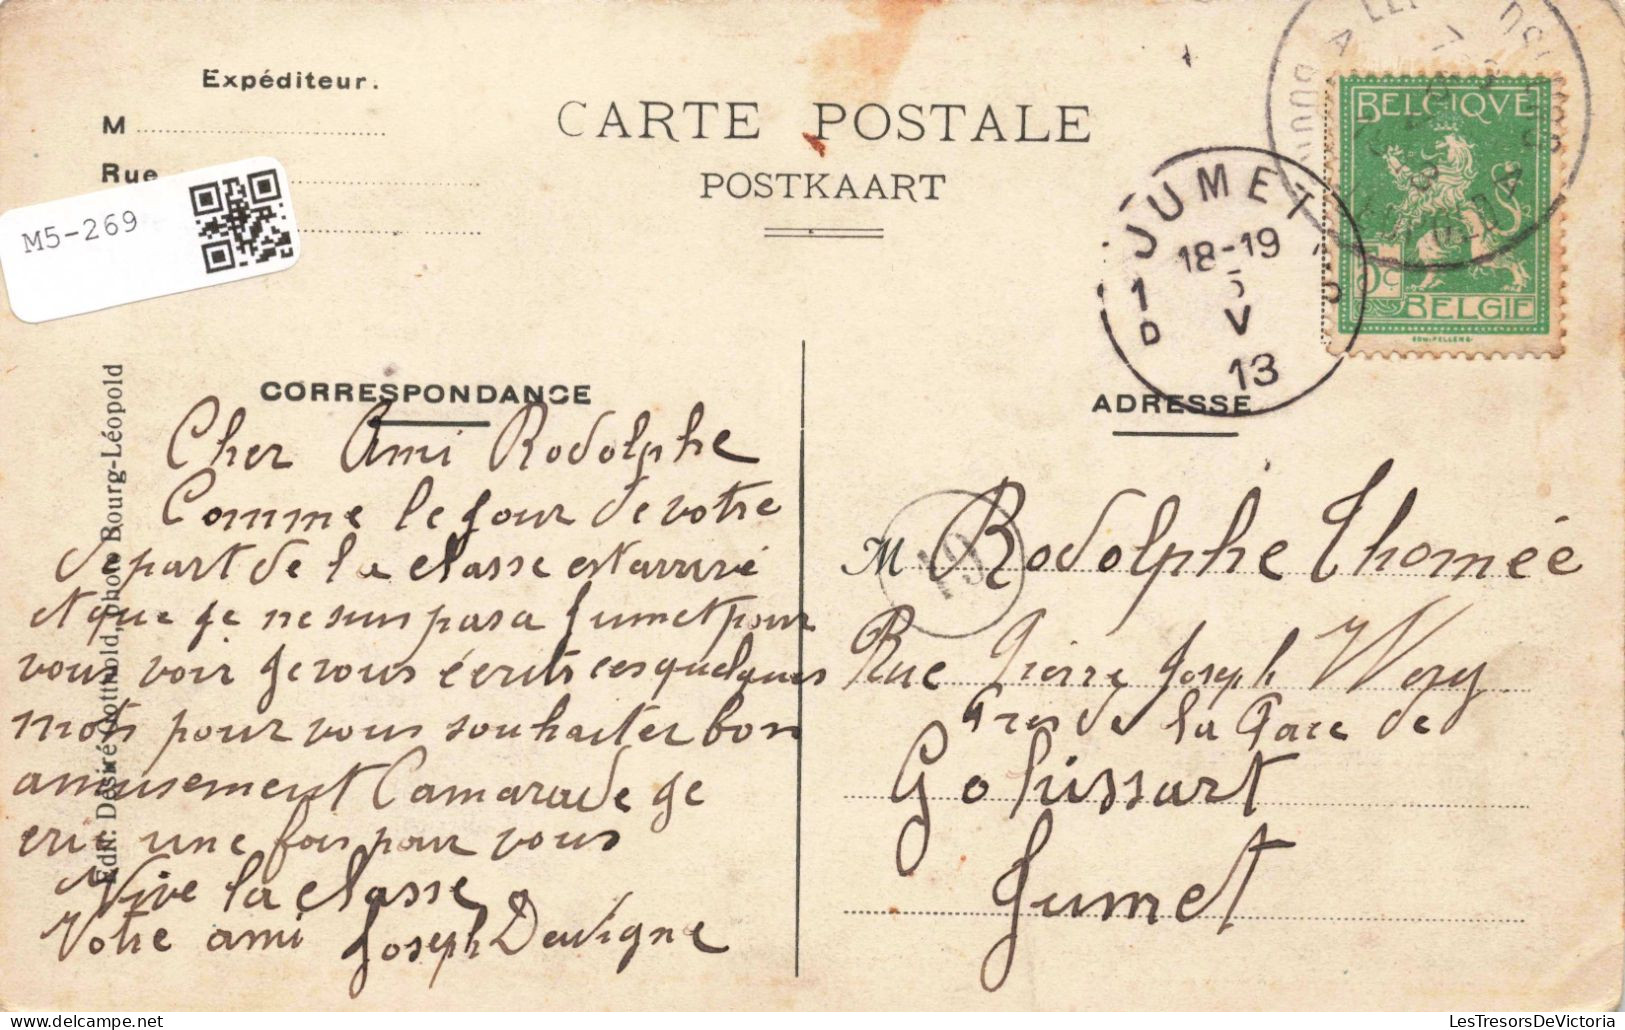 Expéditeur.
M
Rue
M5-269
CARTE POSTALE
POSTKAART
BELGIQVE
BELGIE
JUMET
18-19
5
V
13
1
D
CORRESPONDANCE
ADRESSE
Edit. Désiré Gotthold, photo Bourg-Léopold
Cher Ami Rodolphe
Comme le jour de votre
depart de la classe est arrivé
et que je ne suis pas a Jumet pour
vous voir je vous écrits ces quelques
mots pour vous souhaiter bon
amusement Camarade je
crie une fois pour vous
Vive la classe
Votre ami Joseph Devigne
19
M Rodolphe Thomée
Rue Pierre Joseph Wery
Pres de la Gare de
Gohissart
Jumet
LesTresorsDeVictoria